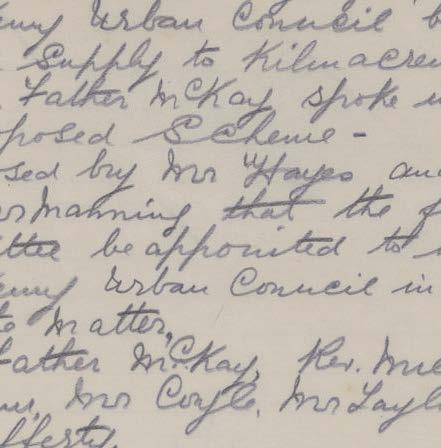 Urban Council
Supply to Kilmacren
Father McKay spoke
posed Scheme -
sed by Mr Hayes and
Manning that the
be appointed to
Urban Council in
Matter.
Father McKay, Rev.
Mr Coyle, Mr Tayl
fferty.